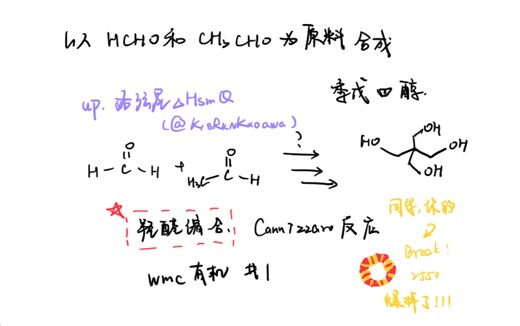 以 HCHO 和 CH3CHO 为原料 合成
季戊四醇.
up. 洛弦星△HsmQ
(@KrsRkNKxoawa)
?
H C H O + H3C C H O
HO OH OH OH
羟醛缩合. Cannizzaro 反应
wmc 有机 #1
同学, 你的
Break!
2550
爆掉了!!!